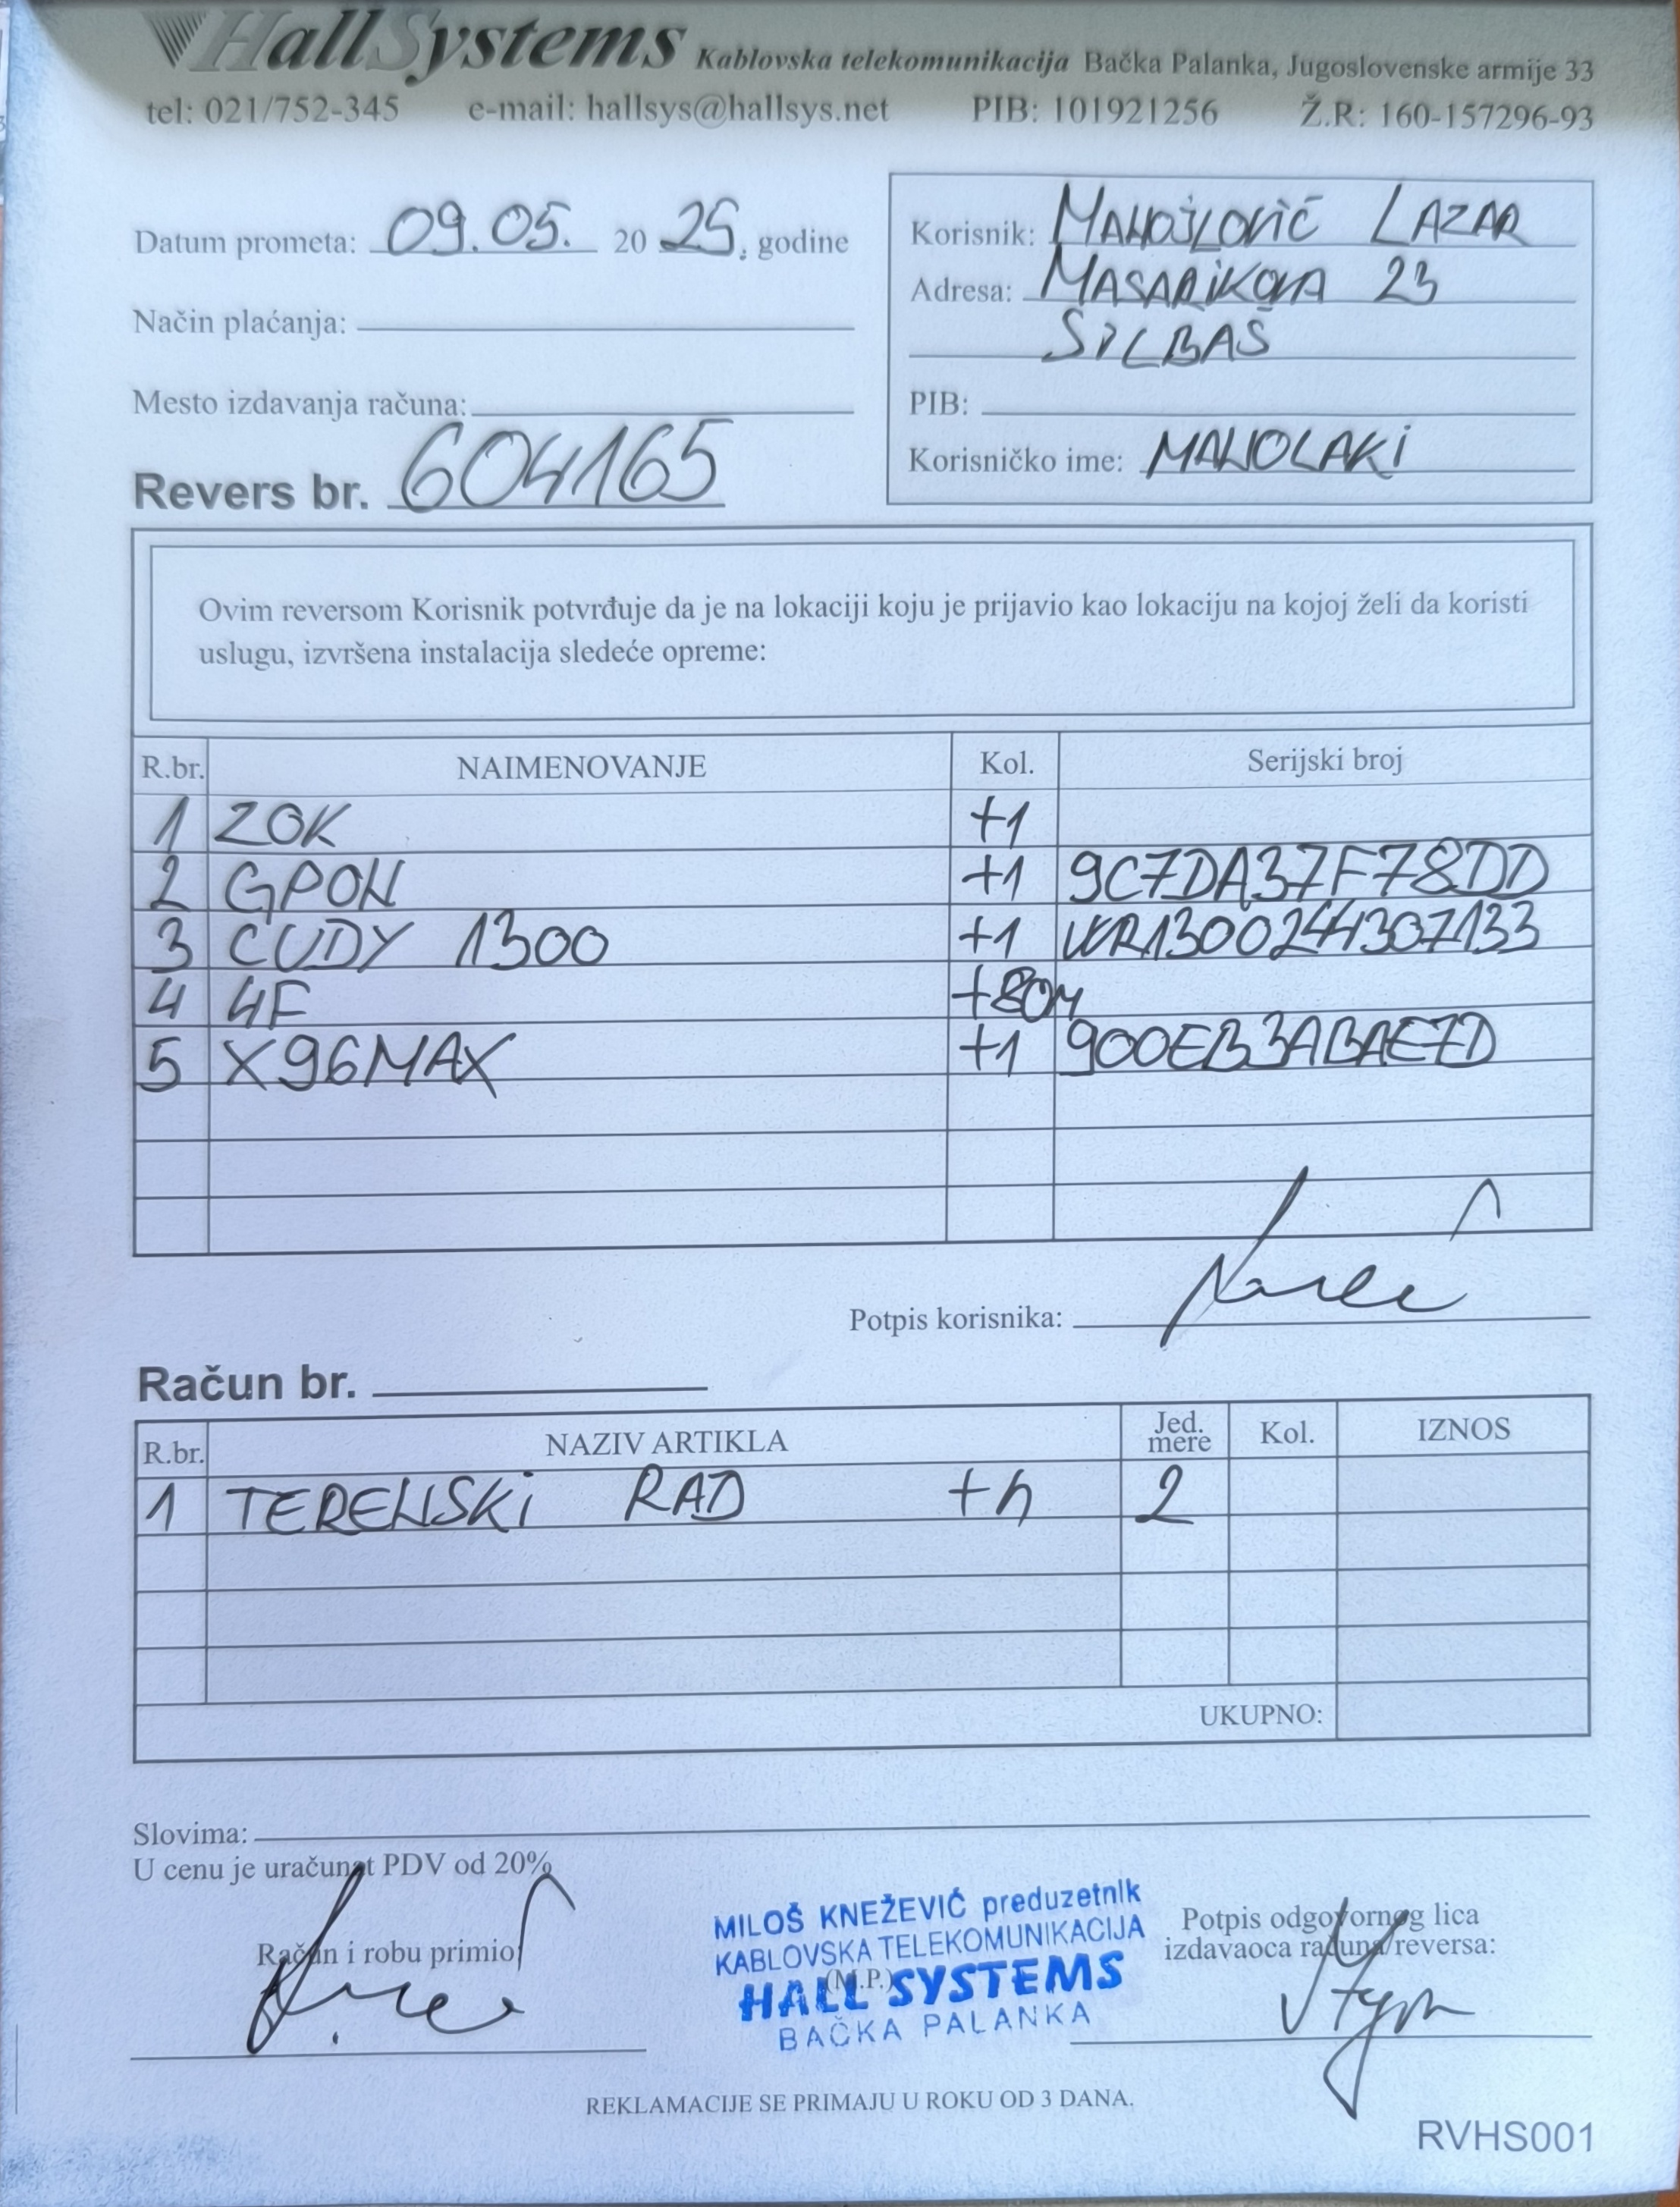 HallSystems Kablovska telekomunikacija Bačka Palanka, Jugoslovenske armije 33
tel: 021/752-345 e-mail: hallsys@hallsys.net PIB: 101921256 Ž.R: 160-157296-93
Datum prometa: 09.05. 2025. godine
Način plaćanja:
Mesto izdavanja računa:
Revers br. 604165
Korisnik: MANOJLOVIĆ LAZAR
Adresa: MASARIKOVA 23
SILBAŠ
PIB:
Korisničko ime: MANOLAKI
Ovim reversom Korisnik potvrđuje da je na lokaciji koju je prijavio kao lokaciju na kojoj želi da koristi
uslugu, izvršena instalacija sledeće opreme:
R.br. NAIMENOVANJE Kol. Serijski broj
1 ZOK +1
2 GPON +1 9C7DA37F78DD
3 CUDY 1300 +1 WR1300244307133
4 4F +80M
5 X96MAX +1 900EB3ABAE7D
Potpis korisnika:
Račun br.
R.br. NAZIV ARTIKLA Jed. mere Kol. IZNOS
1 TERENSKI RAD +h 2
UKUPNO:
Slovima:
U cenu je uračunat PDV od 20%
Račun i robu primio
MILOŠ KNEŽEVIĆ preduzetnik
KABLOVSKA TELEKOMUNIKACIJA
(M.P.)
HALL SYSTEMS
BAČKA PALANKA
Potpis odgovornog lica
izdavaoca računa/reversa:
REKLAMACIJE SE PRIMAJU U ROKU OD 3 DANA.
RVHS001